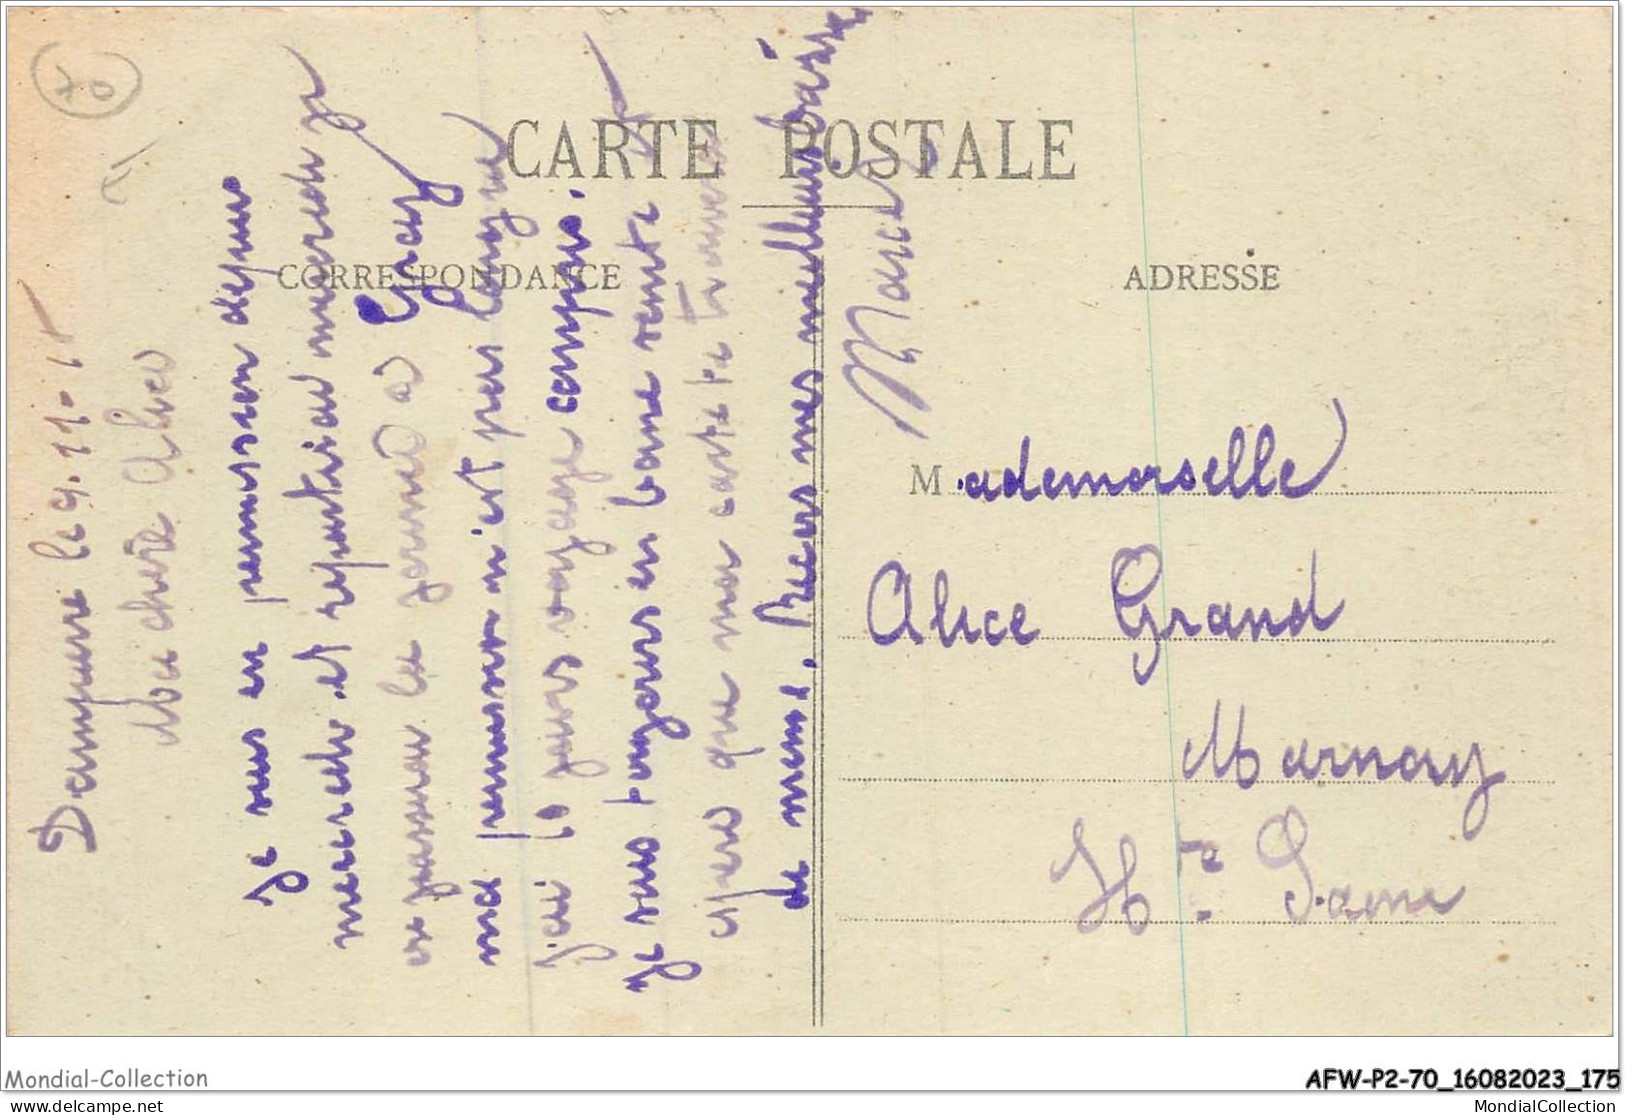 70
CARTE POSTALE
CORRESPONDANCE
ADRESSE
Dampierre le 9.11.15
Ma chère Alice
Je suis en permission depuis
mercredi et repartirai mercredi je
ve passerai la journée à Gray
ma permission n'est pas longue
j'ai 10 jours voyage compris.
Je suis toujours en bonne santé
espère que ma carte te trouvera
de même. Reçois mes meilleurs baisers
Marcel
Mademoiselle
Alice Grand
Marnay
Hte Saone
Mondial-Collection
AFW-P2-70_16082023_175
delcampe.net
MondialCollection